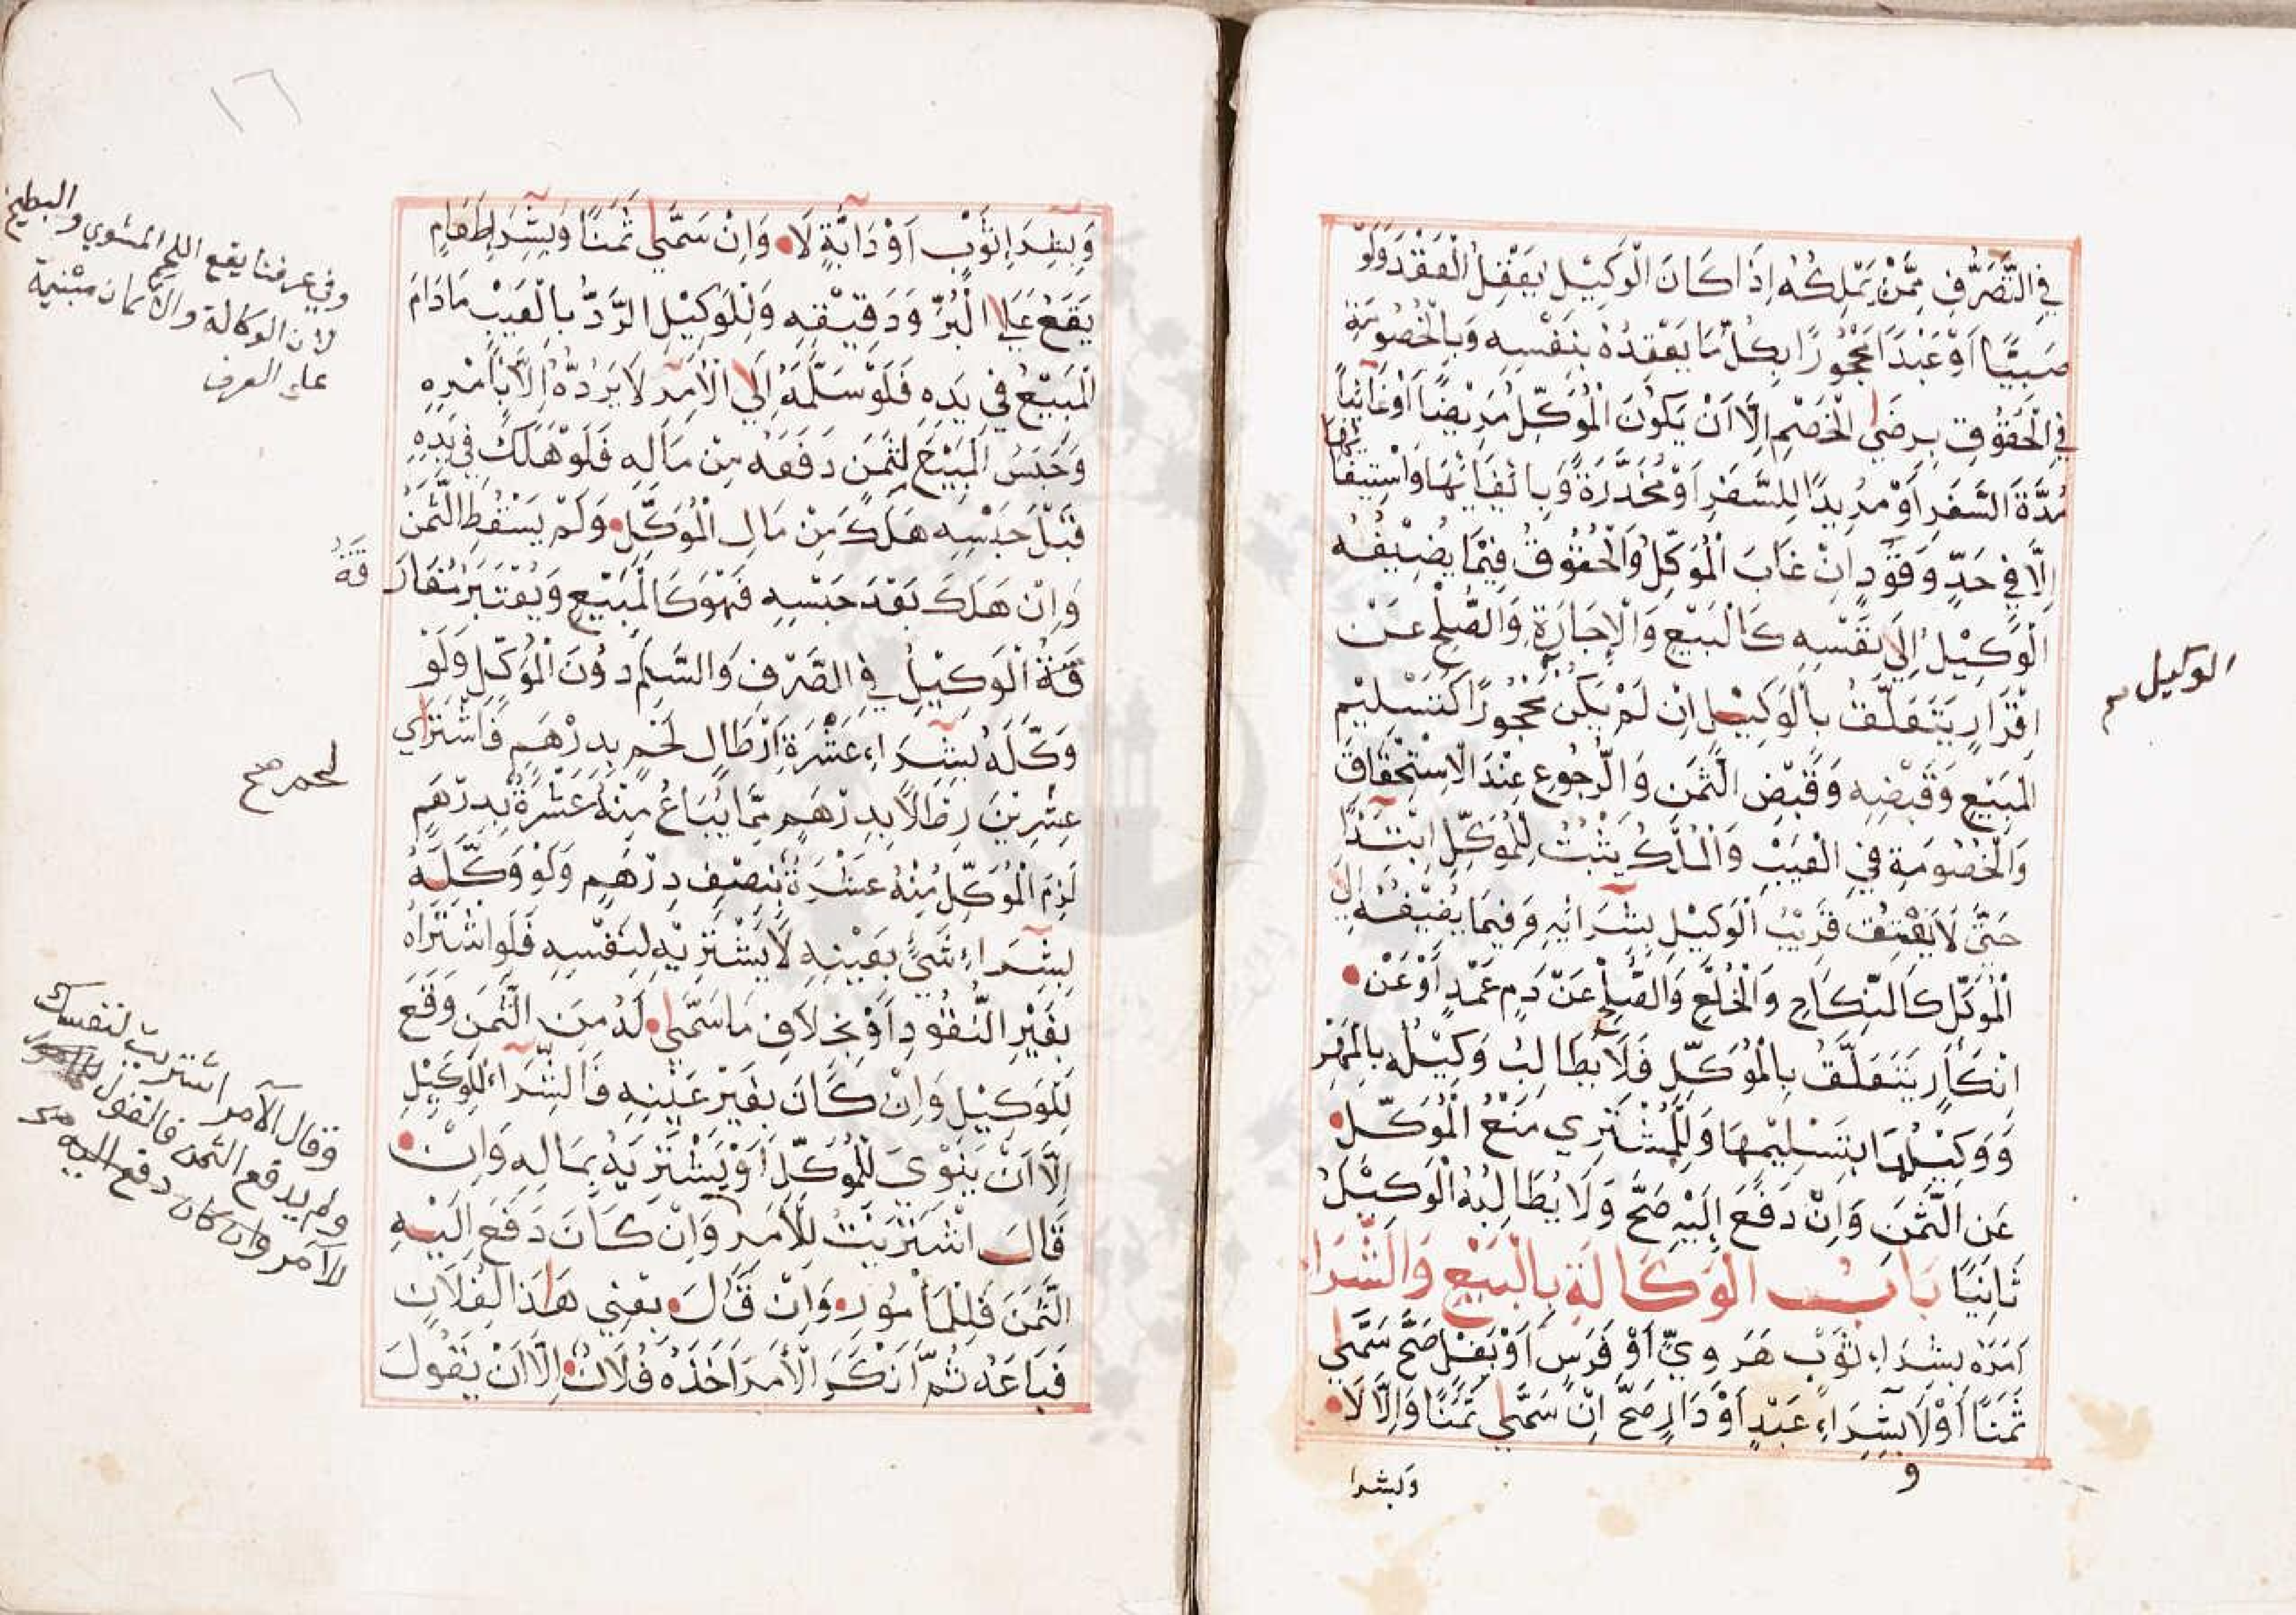 في التَّصَرُّفِ مِمَّنْ يَمْلِكُهُ اِذَا كَانَ الْوَكِيْلُ يَعْقِلُ الْعَقْدَ وَلَوْ
صَبِيًّا اَوْ عَبْدًا مَحْجُورًا بِكُلِّ مَا يَعْقِدُهُ بِنَفْسِهِ وَبِالْخُصُومَةِ
فِي الْحُقُوقِ بِرِضَى الْخَصْمِ اِلَّا اَنْ يَكُونَ الْمُوَكِّلُ مَرِيْضًا اَوْ غَائِبًا
مُدَّةَ السَّفَرِ اَوْ مُرِيدًا لِلسَّفَرِ اَوْ مُخَدَّرَةً وَبِايْفَائِهَا وَاسْتِيفَائِهَا
اِلَّا فِي حَدٍّ وَقَوَدٍ اِنْ غَابَ الْمُوَكِّلُ وَالْحُقُوقُ فِيْمَا يُضِيْفُهُ
الْوَكِيْلُ اِلَى نَفْسِهِ كَالْبَيْعِ وَالْاِجَارَةِ وَالصُّلْحِ عَنْ
اِقْرَارٍ يَتَعَلَّقُ بِالْوَكِيْلِ اِنْ لَمْ يَكُنْ مَحْجُورًا كَتَسْلِيْمِ
الْمَبِيْعِ وَقَبْضِهِ وَقَبْضِ الثَّمَنِ وَالرُّجُوعِ عِنْدَ الْاِسْتِحْقَاقِ
وَالْخُصُومَةِ فِي الْعَيْبِ وَالْمِلْكُ يَثْبُتُ لِلْمُوَكِّلِ ابْتِدَاءً
حَتَّى لَا يَعْتِقُ قَرِيْبُ الْوَكِيْلِ بِشِرَائِهِ وَفِيمَا يُضِيْفُهُ اِلَى
الْمُوَكِّلِ كَالنِّكَاحِ وَالْخُلْعِ وَالصُّلْحِ عَنْ دَمِ عَمْدٍ اَوْ عَنْ
اِنْكَارٍ يَتَعَلَّقُ بِالْمُوَكِّلِ فَلَا يُطَالِبُ وَكِيْلُهُ بِالْمَهْرِ
وَ وَكِيْلُهَا بِتَسْلِيْمِهَا وَلِلْمُشْتَرِي مَنْعُ الْمُوَكِّلِ
عَنِ الثَّمَنِ وَاِنْ دَفَعَ اِلَيْهِ صَحَّ وَلَا يُطَالِبُهُ الْوَكِيْلُ
ثَانِيًا بَابُ الْوَكَالَةِ بِالْبَيْعِ وَالشِّرَاءِ
اَمَرَهُ بِشِرَاءِ ثَوْبٍ هَرَوِيٍّ اَوْ فَرَسٍ اَوْ بَغْلٍ صَحَّ سَمَّى
ثَمَنًا اَوْ لَا بِشِرَاءِ عَبْدٍ اَوْ دَارٍ صَحَّ اِنْ سَمَّى ثَمَنًا وَاِلَّا لَا
و
وبشرا
الوكيل
١٦
وَبِشِرَاءِ ثَوْبٍ اَوْ دَابَّةٍ لَا وَاِنْ سَمَّى ثَمَنًا وَبِشِرَاءِ طَعَامٍ
يَقَعُ عَلَى الْبُرِّ وَدَقِيْقِهِ وَلِلْوَكِيْلِ الرَّدُّ بِالْعَيْبِ مَا دَامَ
الْمَبِيْعُ فِي يَدِهِ فَلَوْ سَلَّمَهُ اِلَى الْاٰمِرِ لَا يَرُدُّهُ اِلَّا بِاَمْرِهِ
وَحَبْسُ الْمَبِيْعِ لِثَمَنٍ دَفَعَهُ مِنْ مَالِهِ فَلَوْ هَلَكَ فِي يَدِهِ
قَبْلَ حَبْسِهِ هَلَكَ مِنْ مَالِ الْمُوَكِّلِ وَلَمْ يَسْقُطِ الثَّمَنُ
وَاِنْ هَلَكَ بَعْدَ حَبْسِهِ فَهُوَ كَالْمَبِيْعِ وَيُعْتَبَرُ مُفَارَ
قَةُ
قَةُ الْوَكِيْلِ فِي الصَّرْفِ وَالسَّلَمِ دُوْنَ الْمُوَكِّلِ وَلَوْ
وَكَّلَهُ بِشِرَاءِ عَشْرَةِ اَرْطَالِ لَحْمٍ بِدِرْهَمٍ فَاشْتَرَى
عِشْرِيْنَ رِطْلًا بِدِرْهَمٍ مِمَّا يُبَاعُ مِنْهُ عَشْرَةٌ بِدِرْهَمٍ
لَزِمَ الْمُوَكِّلَ مِنْهُ عَشْرَةٌ بِنِصْفِ دِرْهَمٍ وَلَوْ وَكَّلَهُ
بِشِرَاءِ شَيْءٍ بِعَيْنِهِ لَا يَشْتَرِيْهِ لِنَفْسِهِ فَلَوِ اشْتَرَاهُ
بِغَيْرِ النُّقُودِ اَوْ بِخِلَافِ مَا سَمَّى لَهُ مِنَ الثَّمَنِ وَقَعَ
لِلْوَكِيْلِ وَاِنْ كَانَ بِغَيْرِ عَيْنِهِ فَالشِّرَاءُ لِلْوَكِيْلِ
اِلَّا اَنْ يَنْوِيَ لِلْمُوَكِّلِ اَوْ يَشْتَرِيَهُ بِمَالِهِ وَاِنْ
قَالَ اشْتَرَيْتُ لِلْاٰمِرِ وَاِنْ كَانَ دَفَعَ اِلَيْهِ
الثَّمَنَ فَلِلْمَاْمُورِ وَاِنْ قَالَ بِعْنِي هَذَا لِفُلَانٍ
فَبَاعَهُ ثُمَّ اَنْكَرَ الْاٰمِرَ اَخَذَهُ فُلَانٌ اِلَّا اَنْ يَقُولَ
وفي عرفنا يقع اللحم المشوي والبطيخ
لان الوكالة والايمان مبنية
على العرف
لحم صح
وقال الآمر اشتريت لنفسك
ولم يدفع الثمن فالقول للمأمور
وان كان دفع اليه
للآمر